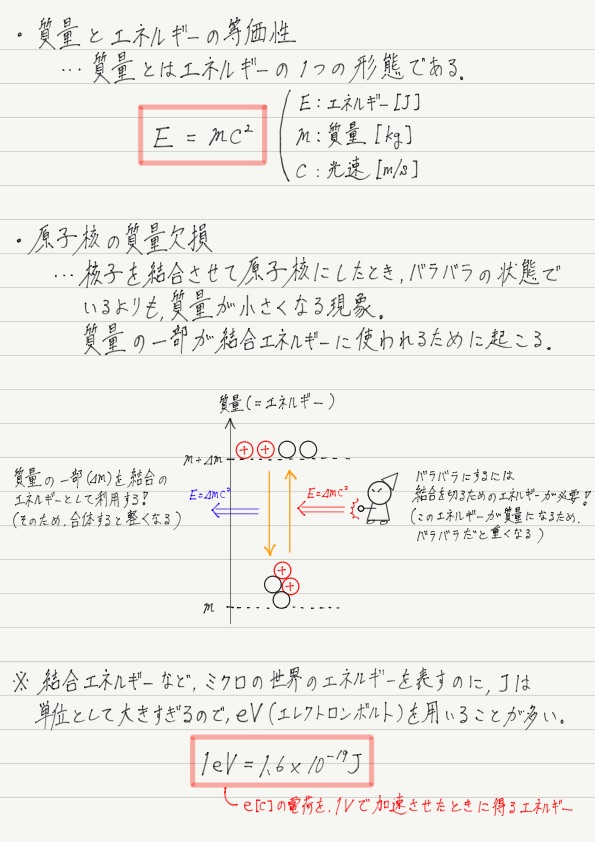 ・質量とエネルギーの等価性
…質量とはエネルギーの1つの形態である。
E = mc²
E：エネルギー [J]
m：質量 [kg]
c：光速 [m/s]
・原子核の質量欠損
…核子を結合させて原子核にしたとき, バラバラの状態で
いるよりも, 質量が小さくなる現象。
質量の一部が結合エネルギーに使われるために起こる.
質量(=エネルギー)
m+Δm
+ +
質量の一部(Δm)を結合の
エネルギーとして利用する!
(そのため, 合体すると軽くなる)
E=Δmc²
E=Δmc²
バラバラにするには
結合を切るためのエネルギーが必要!
(このエネルギーが質量になるため,
バラバラだと重くなる)
+
+
m
※ 結合エネルギーなど, ミクロの世界のエネルギーを表すのに, Jは
単位として大きすぎるので, eV(エレクトロンボルト)を用いることが多い。
1eV = 1.6×10⁻¹⁹J
e[C]の電荷を, 1Vで加速させたときに得るエネルギー